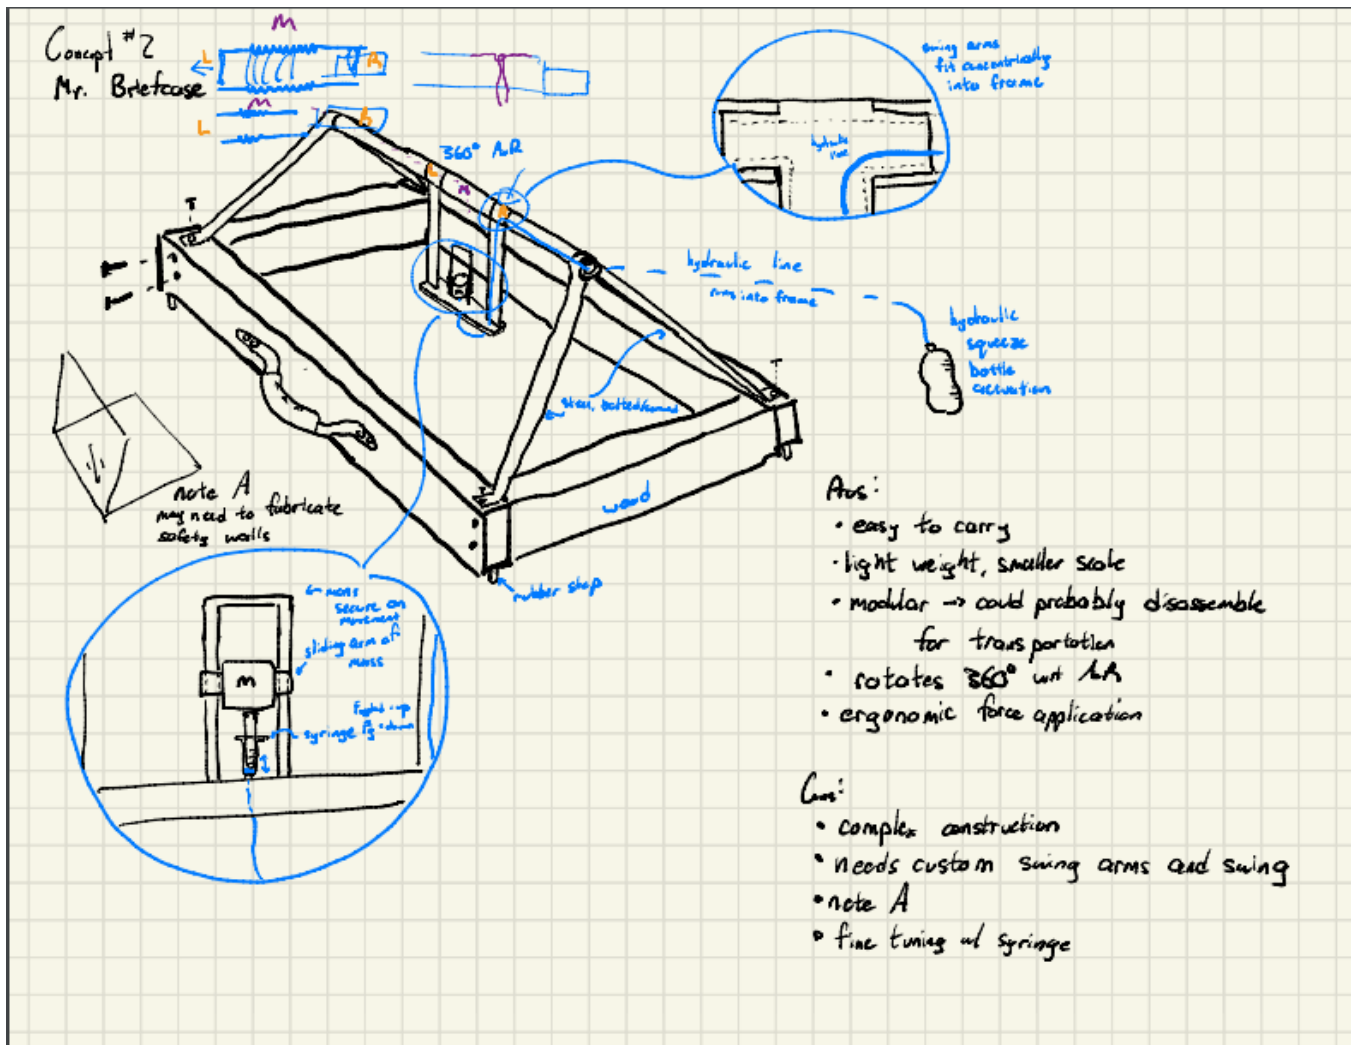 Concept #2
Mr. Briefcase
M
L
R
M
L
R
swing arms
fit concentrically
into frame
hydraulic
line
360° AoR
L
M
R
hydraulic line
runs into frame
hydraulic
squeeze
bottle
activation
steel, bolted/
wood
rubber stop
note A
may need to fabricate
safety walls
more
secure on
movement
sliding arm of
mass
M
up
syringe down
Pros:
• easy to carry
• light weight, smaller scale
• modular → could probably disassemble
for transportation
• rotates 360° wrt AoR
• ergonomic force application
Cons:
• complex construction
• needs custom swing arms and swing
• note A
• fine tuning w/ syringe